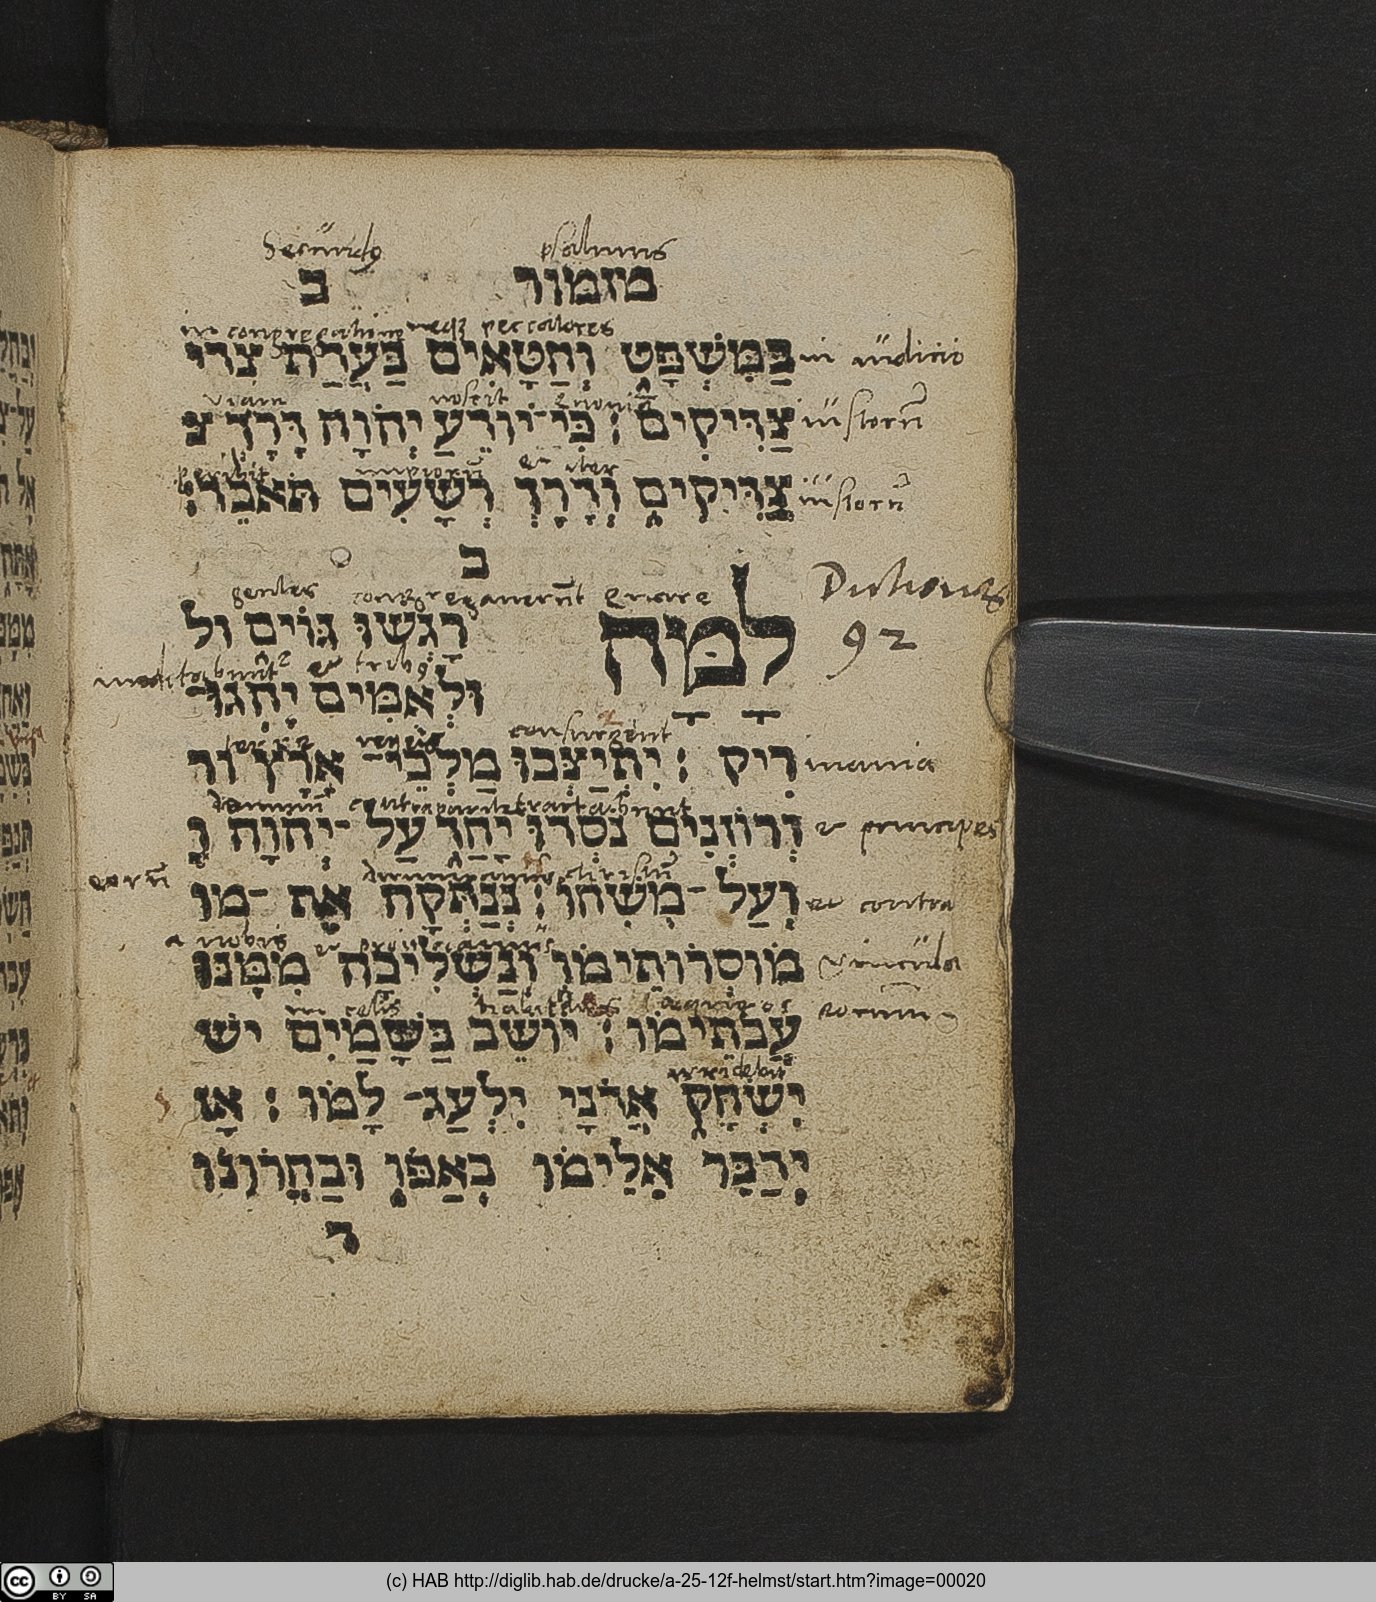 Secundus psalmus
מזמור ב
in congregatione neque peccatores
בַּמִּשְׁפָּט וְחַטָּאִים בַּעֲדַת צדי in iudicio
viam novit
צַדִּיקִים׃ כִּי־יוֹדֵעַ יְהוָה דֶּרֶךְ צ iustorum
peribit impiorum et iter
צַדִּיקִים וְדֶרֶךְ רְשָׁעִים תֹּאבֵד׃ iustorum
ב
gentes congregaverunt quare
לָמָּה רָגְשׁוּ גוֹיִם ול
92
meditabuntur et tribus
וּלְאֻמִּים יֶהְגּוּ־
terre reges consurgent
רִיק׃ יִתְיַצְּבוּ מַלְכֵי־אֶרֶץ ור inania
contra pariter tractabunt
וְרוֹזְנִים נוֹסְדוּ יָחַד עַל־יְהוָה ו et principes
eorum
וְעַל־מְשִׁחוֹ׃ נְנַתְּקָה אֶת־מו et contra
a nobis et
מוֹסְרוֹתֵימוֹ וְנַשְׁלִיכָה מִמֶּנּוּ vincula
in celis
עֲבֹתֵימוֹ׃ יוֹשֵׁב בַּשָּׁמַיִם יש eorum
יִשְׂחָק אֲדֹנָי יִלְעַג־לָמוֹ׃ אָז
יְדַבֵּר אֵלֵימוֹ בְאַפּוֹ וּבַחֲרוֹנוֹ
(c) HAB http://diglib.hab.de/drucke/a-25-12f-helmst/start.htm?image=00020
BY SA